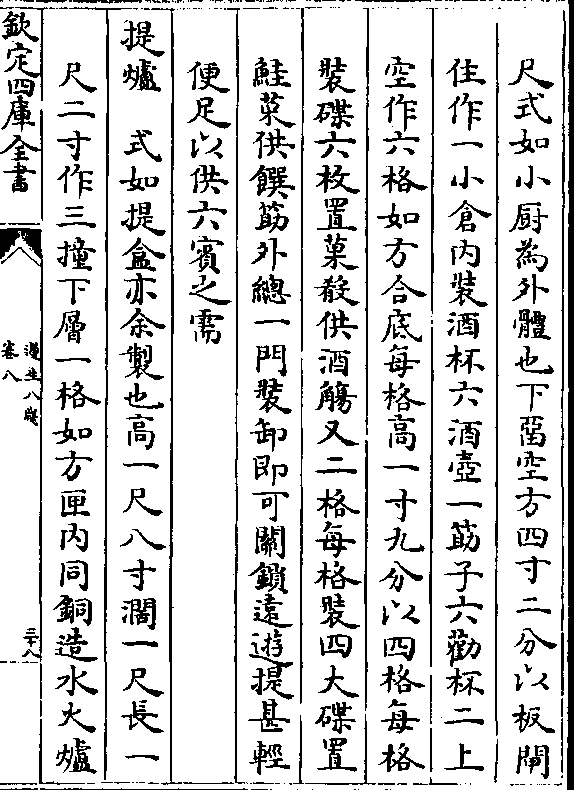 尺式如小厨為外體也下畱空方四寸二分以板閘
住作一小倉内装酒杯六酒壺一筯子六勸杯二上
空作六格如方合底每格高一寸九分以四格每格
裝碟六枚置菓殽供酒觴又二格每格裝四大碟置
鮭菜供饌筯外總一門裝卸即可關鎖遠遊提甚輕
便足以供六賓之需
提爐　式如提盒亦余製也高一尺八寸濶一尺長一
尺二寸作三撞下層一格如方匣内同銅造水火爐
欽定四庫全書
遵生八牋
卷八
三十八